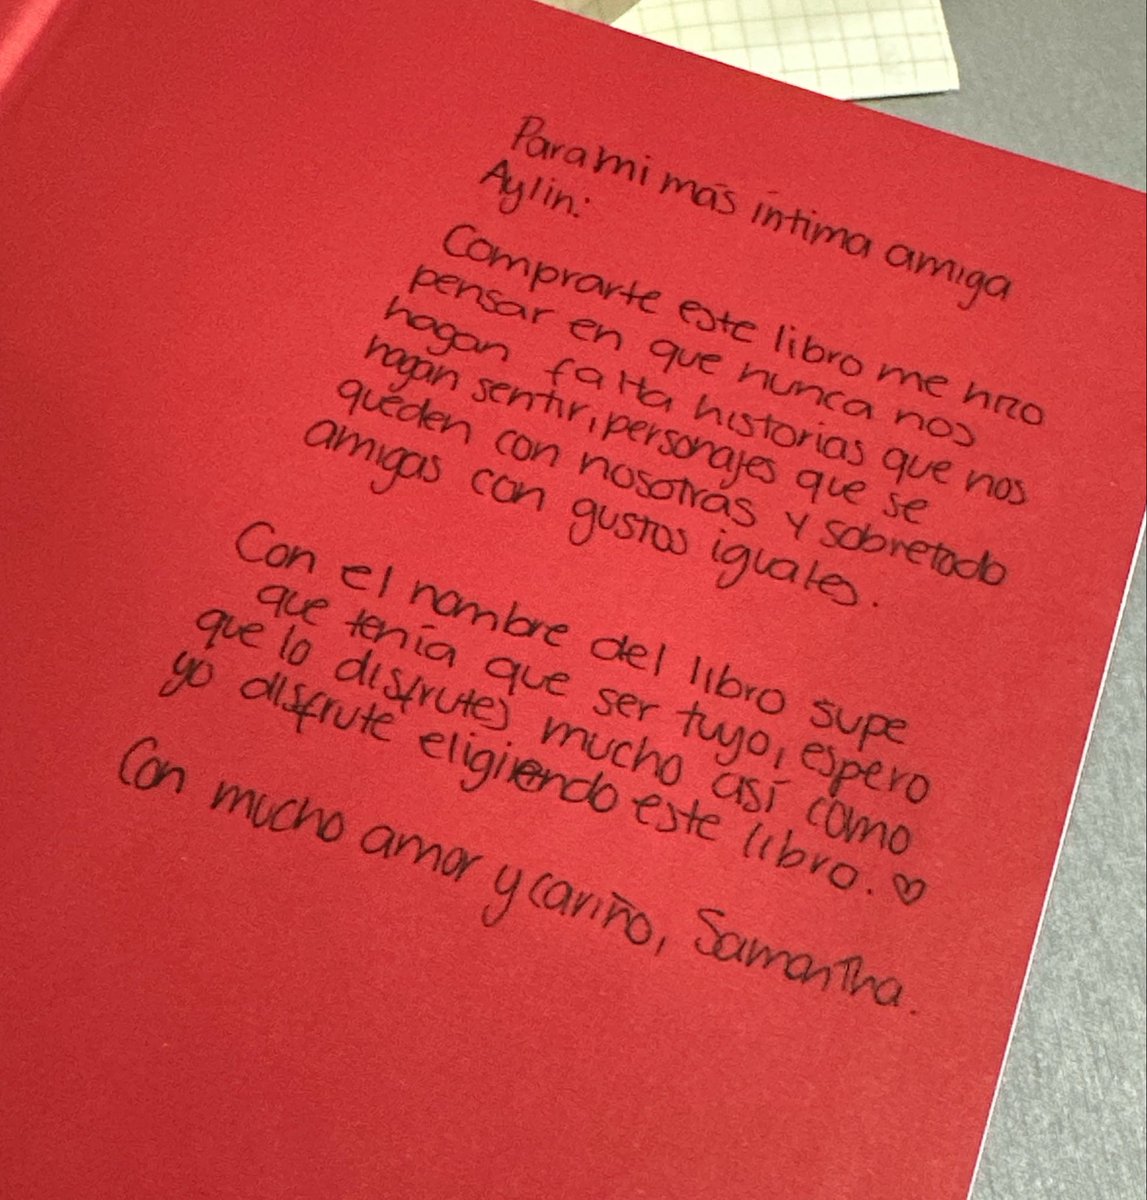 Para mi más íntima amiga
Aylin:
Comprarte este libro me hizo
pensar en que nunca nos
hagan falta historias que nos
hagan sentir, personajes que se
queden con nosotras y sobretodo
amigas con gustos iguales.
Con el nombre del libro supe
que tenía que ser tuyo, espero
que lo disfrutes mucho así como
yo disfrute eligiendo este libro. ♡
Con mucho amor y cariño, Samantha.